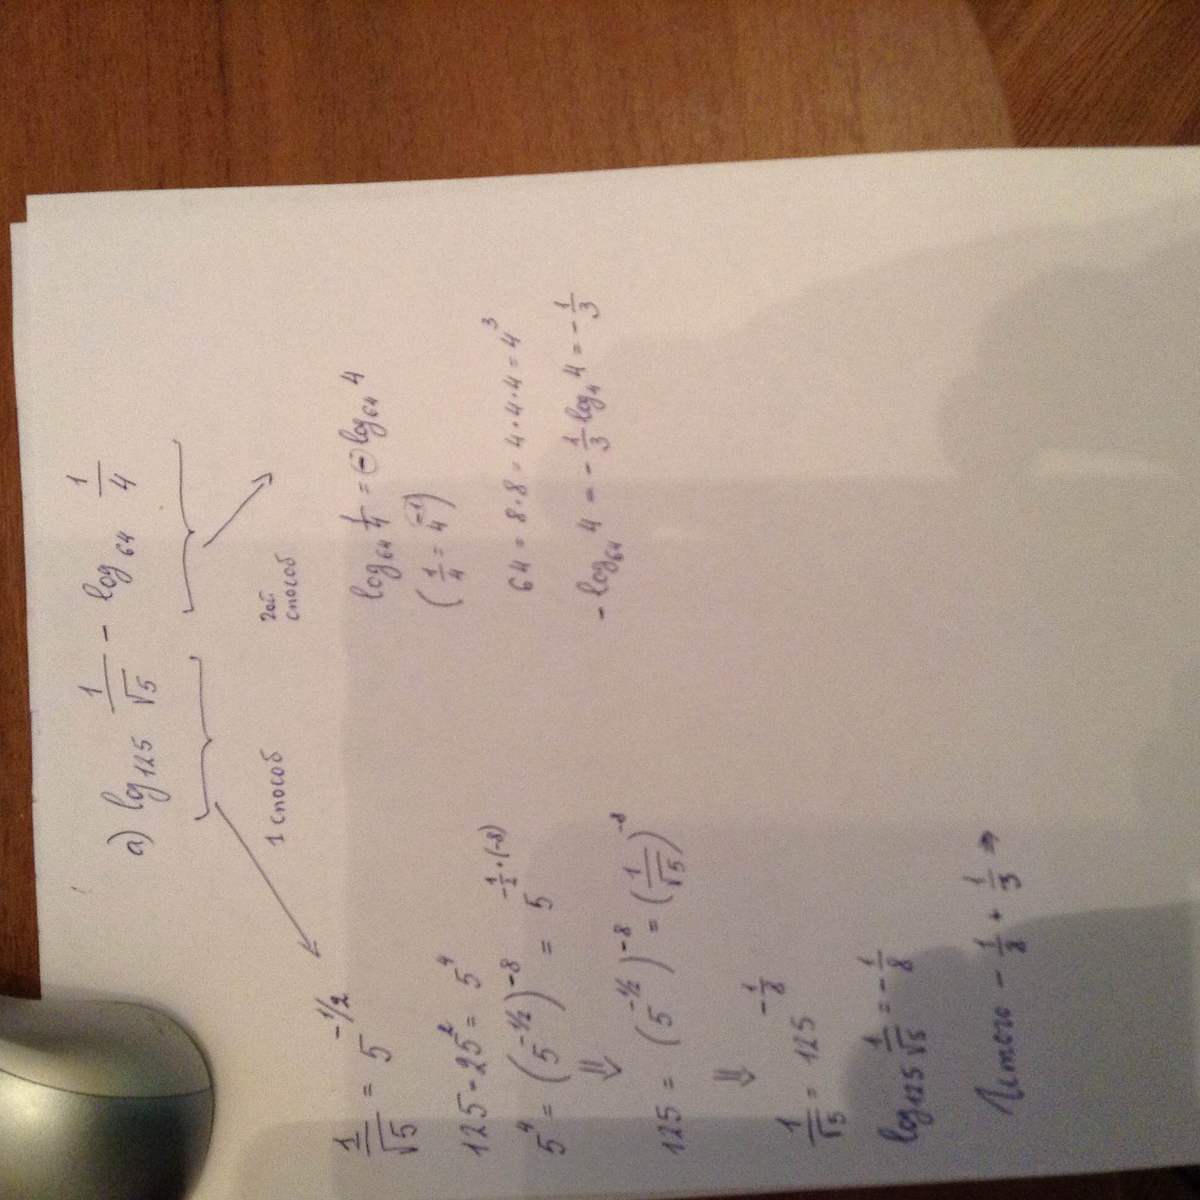 а) log₁₂₅ 1/√5 - log₆₄ 1/4
1 способ
2ой способ
1/√5 = 5^(-1/2)
125 = 25² = 5⁴
5⁴ = (5^(-1/2))^(-8) = 5^(-1/2·(-8))
⇓
125 = (5^(-1/2))^(-8) = (1/√5)^(-8)
⇓
1/√5 = 125^(-1/8)
log₁₂₅ 1/√5 = -1/8
Итого - 1/8 + 1/3 ⇒
log₆₄ 1/4 = - log₆₄ 4
(1/4 = 4^(-1))
64 = 8·8 = 4·4·4 = 4³
- log₆₄ 4 = - 1/3 log₄ 4 = - 1/3